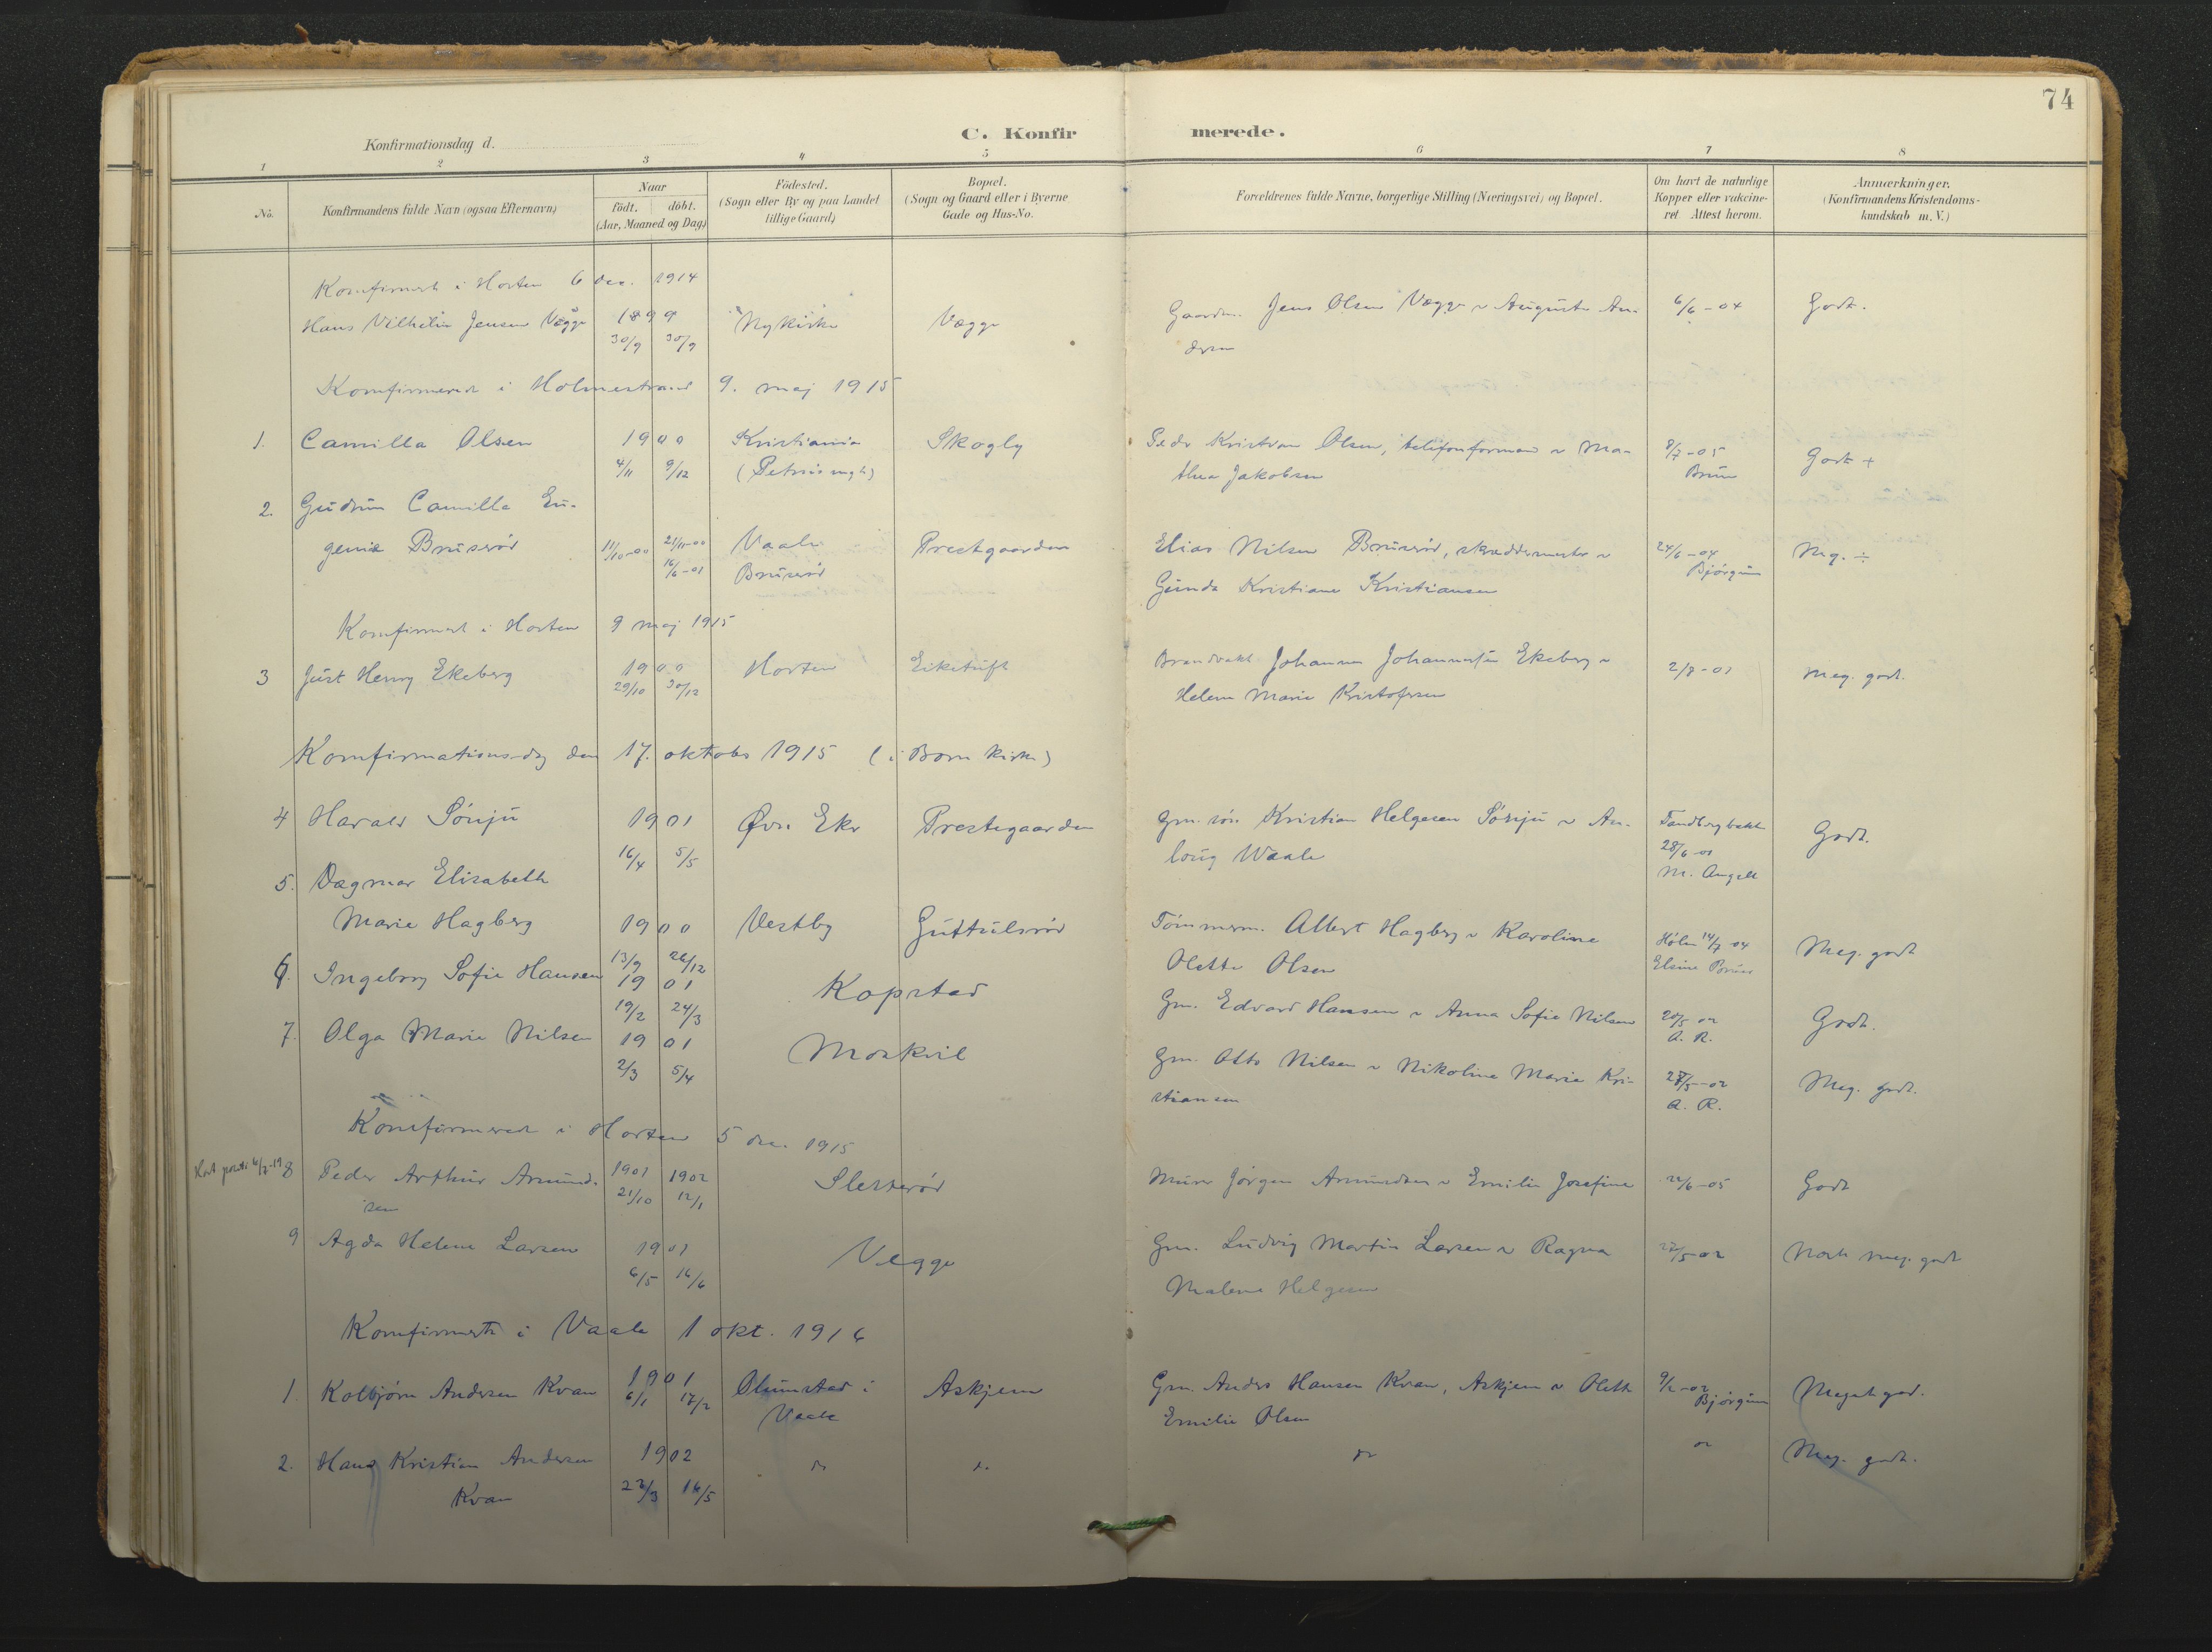 74
C. Konfirmerede.
Konfirmationsdag d.
1 2 3 4 5 6 7 8
No.
Konfirmandens fulde Navn (ogsaa Efternavn)
Naar
födt. döbt.
(Aar, Maaned og Dag)
Födested.
(Sogn eller By og paa Landet
tillige Gaard)
Bopæl.
(Sogn og Gaard eller i Byerne
Gade og Hus-No.
Forældrenes fulde Navne, borgerlige Stilling (Næringsvei) og Bopæl.
Om havt de naturlige
Kopper eller vakcine-
ret Attest herom.
Anmærkninger.
(Konfirmandens Kristendoms-
kundskab m. V.)
i Horten 6 dec. 1914
Hans Vilhelm Jensen Vægge 1899 Nykirke Vegge Jens Olsen Vegge Auguste An- 6/6-04 Godt.
30/9 30/9 dersen
Konfirmeret i Holmestrand 9. maj 1915
1. Camilla Olsen 1900 Kristiania Skogly Peder Kristian Olsen, telefonformand Ma- 8/7-05 Godt +
4/11 9/12 thea Jakobsen Bruun
2. Gudrun Camilla Eu-
genie Brusrød 11/10-00 21/11-00 Vaale Prestgaarden Elias Nilsen Brusrød, skreddermester 24/6-04 Meg. ÷
16/6-01 Brusrød Gunda Kristiane Kristiansen Bjørgum
i Horten 9 maj 1915
3 Just Henry Ekeberg 1900 Horten Johannes Johannessen Ekeberg 2/8-01 Meg. godt.
29/10 30/12 Helene Marie Kristofersen
Konfirmationsdag den 17. oktober 1915 (i Borre kirke)
4 Harald Sönju 1901 Øvre Eker Prestegaarden Gm. sön Kristian Helgesen Sönju An- Godt.
16/4 5/5 laug Waale 28/6-01
M. Angell
5. Dagmar Elisabeth
Marie Hagberg 1900 Vestby Guttulsrød Tömmerm. Albert Hagberg Karoline 14/7-04 Meg. godt
13/9 26/12 Olette Olsen
6. Ingeborg Sofie Hansen 1901 Kopstad Gm. Edvard Hansen Anna Sofie Nilsen 20/5 02 Godt.
19/2 24/3 A. R.
7. Olga Marie Nilsen 1901 Moskvil Gm. Otto Nilsen Nikoline Marie Kri- 02 Meg. godt.
2/3 5/4 stiansen A. R.
Konfirmeret i Horten 5 dec. 1915
8 Peder Arthur Amund- 1901 1902 Sletterød Murer Jörgen Amundsen Emilie Josefine 22/6-05 Godt
sen 21/10 12/1
9 Agda Helene Larsen 1901 Vegge Gm. Ludvig Martin Larsen Ragna 27/5-02 meg. godt
6/5 16/6 Malene Helgesen
i Vaale 1 okt. 1916
1. Kolbjørn Andersen Kvan 1901 i Askjem Gm. Anders Hansen Kvan, Askjem Olette Meget god.
6/1 17/2 Vaale Emilie Olsen Bjørgum
2. Hans Kristian Andersen 1902 Meg. godt.
Kvan 16/5